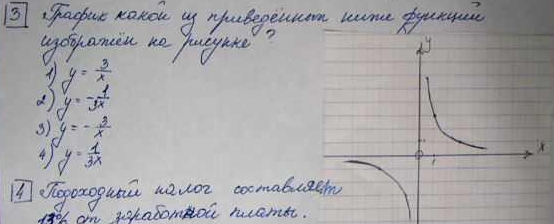 3 График какой из приведённых ниже функций
изображён на рисунке?
1) y = 3/x
2) y = -1/3x
3) y = -3/x
4) y = 1/3x
y
x
4 Подоходный налог составляет
13% от заработной платы.